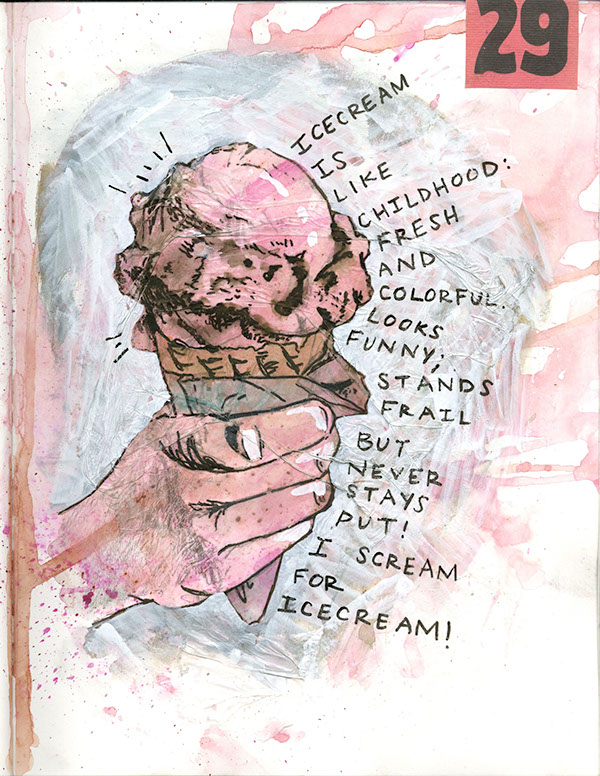 29
ICECREAM
IS
LIKE
CHILDHOOD:
FRESH
AND
COLORFUL.
LOOKS
FUNNY;
STANDS
FRAIL
BUT
NEVER
STAYS
PUT!
I SCREAM
FOR
ICECREAM!